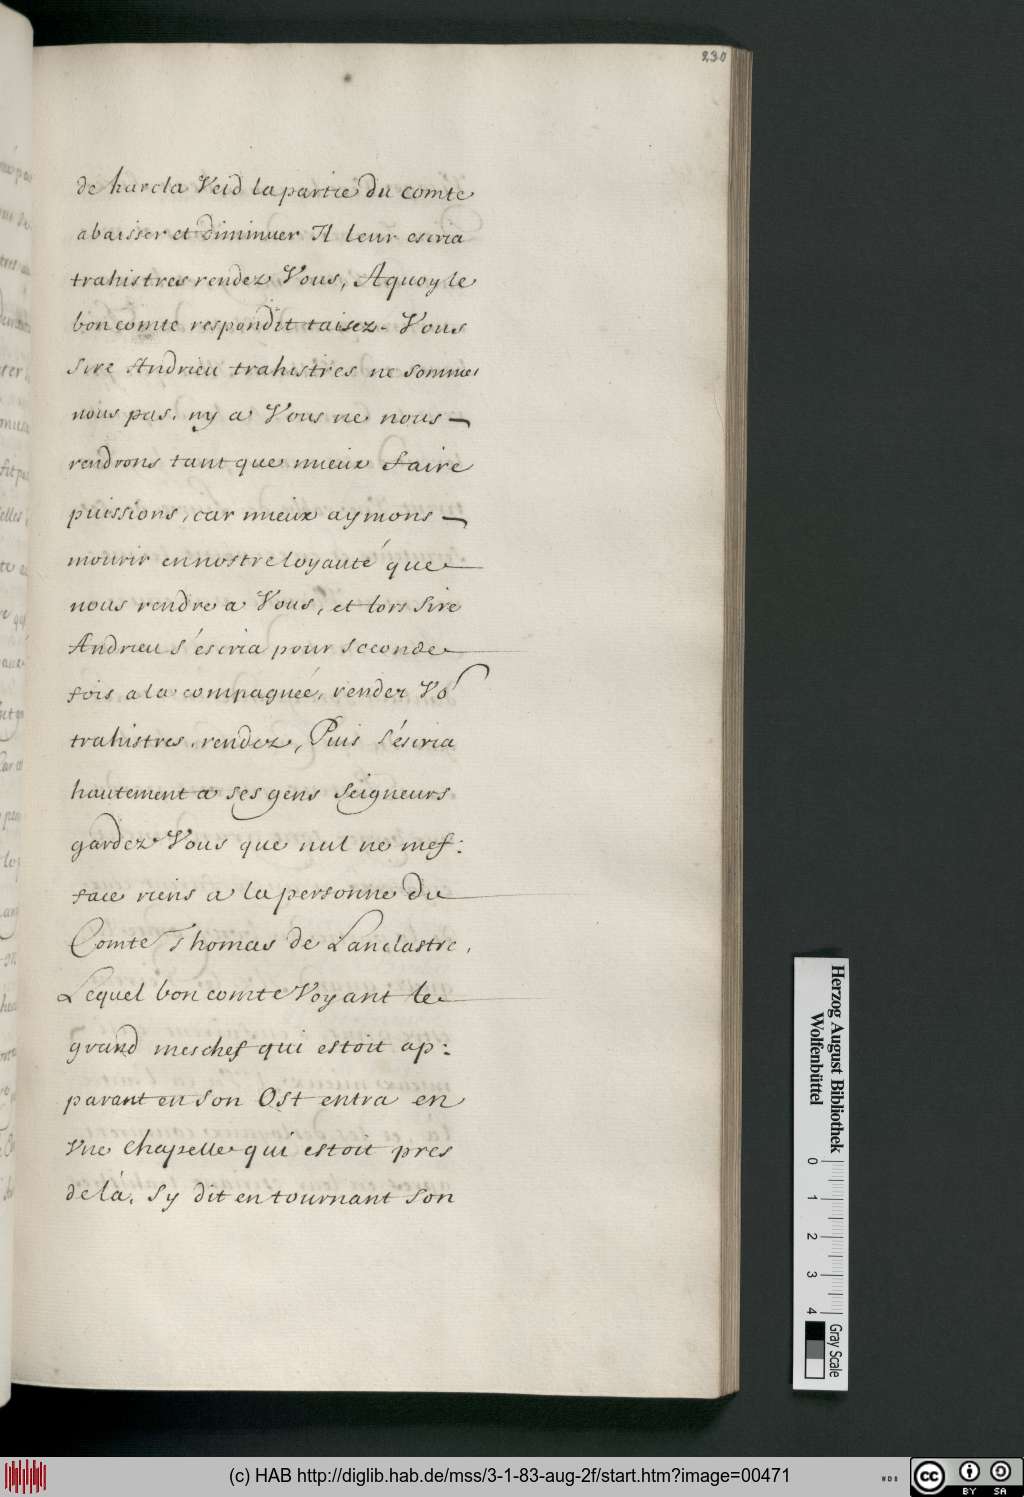 230
de harcla Veid la partie du comte
abaisser et diminuer Il leur escria
trahistres rendez Vous, A quoy le
bon comte respondit taisez-Vous
Sire Andrieu trahistres ne sommes
nous pas, ny a Vous ne nous
rendrons tant que mieux faire
puissions, car mieux aymons
mourir en nostre loyauté que
nous rendre a Vous, et lors Sire
Andrieu s'escria pour seconde
fois a la compagnée, rendez Vo9
trahistres, rendez, Puis s'éscria
hautement a ses gens Seigneurs
gardez Vous que nul ne mes:
face riens a la personne du
Comte Thomas de Lanclastre,
Lequel bon comte Voyant le
grand meschef qui estoit ap:
parant en son Ost entra en
Vne Chapelle qui estoit pres
de là, Sy dit en tournant son
Herzog August Bibliothek
Wolfenbüttel
0 1 2 3 4
Gray Scale
(c) HAB http://diglib.hab.de/mss/3-1-83-aug-2f/start.htm?image=00471
cc BY SA